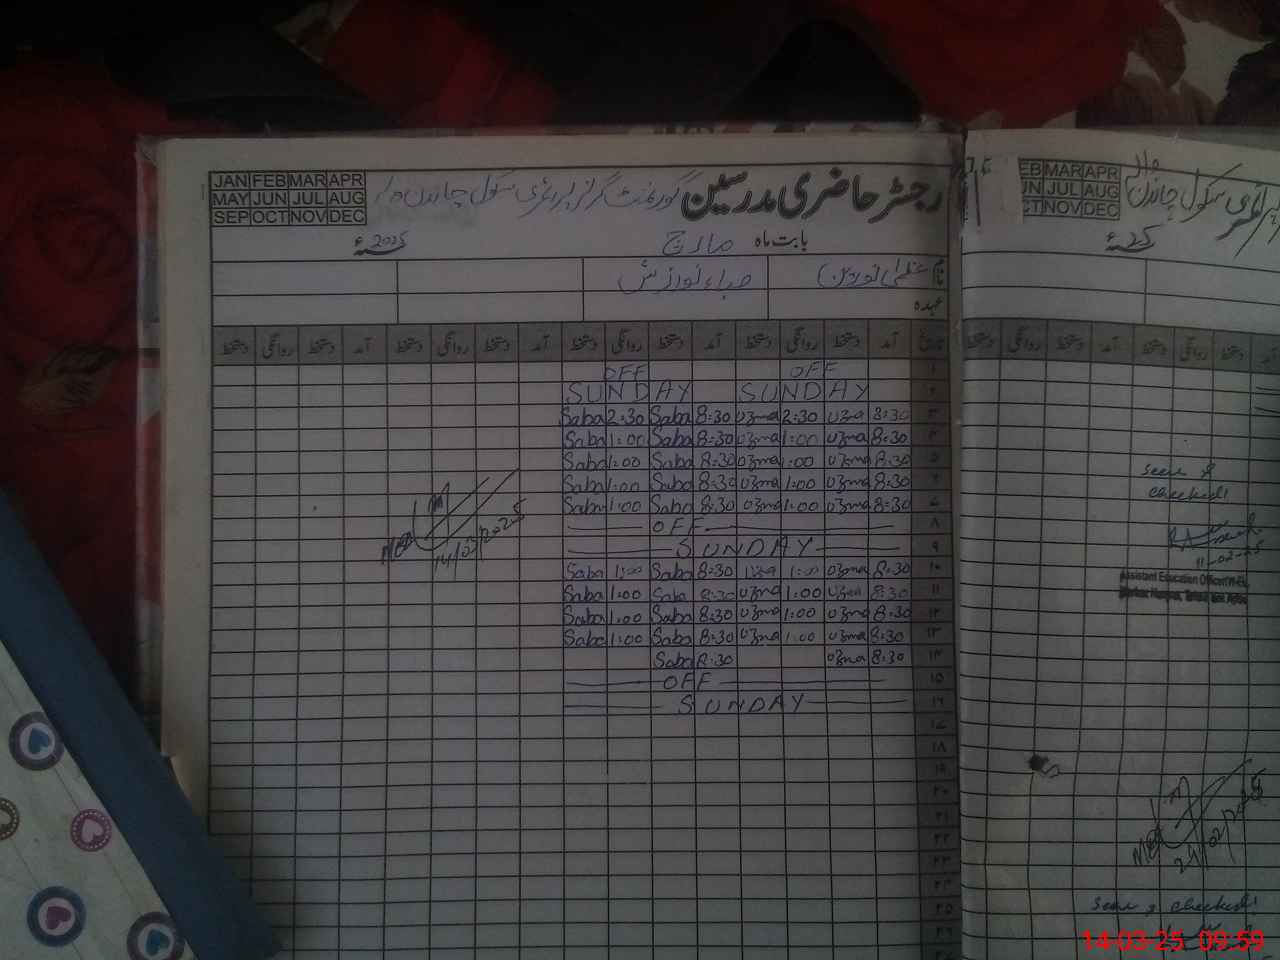 JAN FEB MAR APR
MAY JUN JUL AUG
SEP OCT NOV DEC
رجسٹر حاضری مدرسین گورنمنٹ گرلز پرائمری سکول چاندن والا
بابت ماہ مارچ 2025ء
نام عظمیٰ نورین صباء نوازش
عہدہ
تاریخ آمد دستخط روانگی دستخط آمد دستخط روانگی دستخط آمد دستخط روانگی دستخط آمد دستخط روانگی دستخط
۱ OFF OFF
۲ SUNDAY SUNDAY
۳ 8:30 uzma 2:30 uzma 8:30 Saba 2:30 Saba
۴ 8:30 uzma 1:00 uzma 8:30 Saba 1:00 Saba
۵ 8:30 uzma 1:00 uzma 8:30 Saba 1:00 Saba
۶ 8:30 uzma 1:00 uzma 8:30 Saba 1:00 Saba
۷ 8:30 uzma 1:00 uzma 8:30 Saba 1:00 Saba
۸ OFF
۹ SUNDAY
۱۰ 8:30 uzma 1:00 uzma 8:30 Saba 1:00 Saba
۱۱ 8:30 uzma 1:00 uzma 8:30 Saba 1:00 Saba
۱۲ 8:30 uzma 1:00 uzma 8:30 Saba 1:00 Saba
۱۳ 8:30 uzma 1:00 uzma 8:30 Saba 1:00 Saba
۱۴ 8:30 uzma 8:30 Saba
۱۵ OFF
۱۶ SUNDAY
۱۷
۱۸
۱۹
۲۰
۲۱
۲۲
۲۳
۲۴
۲۵
۲۶
MEA
14/03/2025
EB MAR APR
UN JUL AUG
CT NOV DEC
سکول چاندن والا
25ء
دستخط آمد دستخط روانگی دستخط
seen &
checked
11-02-25
Assistant Education Officer
MEA
24/02/2025
seen & checked
14-03-25 09:59